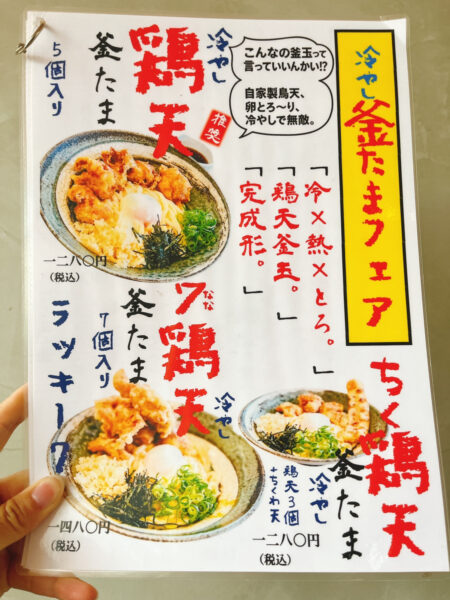 冷やし釜たまフェア
こんなの釜玉って
言っていいんかい!?
自家製鳥天、
卵とろ〜り、
冷やしで無敵。
「冷×熱×とろ。」
「鶏天釜玉。」
「完成形。」
推奨
冷やし
鶏天
釜たま
5個入り
一二八〇円
(税込)
冷やし
7鶏天
なな
釜たま
7個入り
ラッキー7
一四八〇円
(税込)
ちく鶏天
冷やし
釜たま
鶏天3個
+ちくわ天
一二八〇円
(税込)